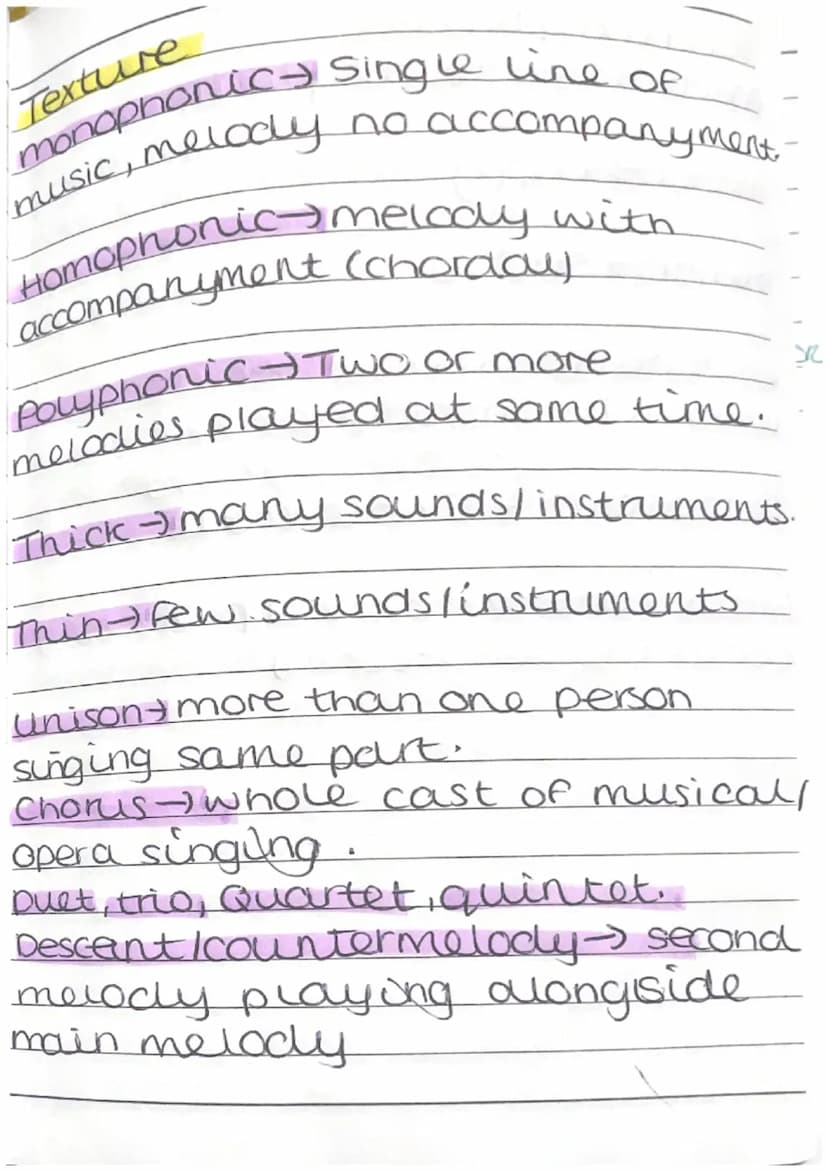 Texture
monophonic→ Single line of
music, melody no accompanyment.
Homophonic→ melody with
accompanyment (chordal)
Polyphonic → Two or more
melodies played at same time.
Thick → many sounds/instruments.
Thin→ few sounds/instruments
unison→ more than one person
singing same part.
Chorus → whole cast of musical/
opera singing.
Duet, trio, Quartet, quintet.
Descent/countermelody→ second
melody playing alongside
main melody